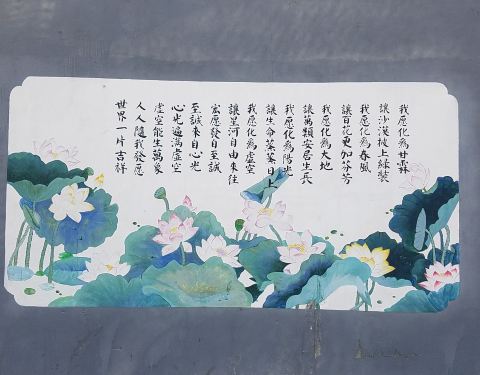 我愿化為甘霖
讓沙漠披上綠裝
我愿化為春風
讓百花更加芬芳
我愿化為大地
讓萬類安居生長
我愿化為陽光
讓生命蒸蒸日上
我愿化為虛空
讓星河自由來往
宏愿發自至誠
至誠來自心光
心光遍滿虛空
虛空能生萬象
人人隨我發愿
世界一片吉祥